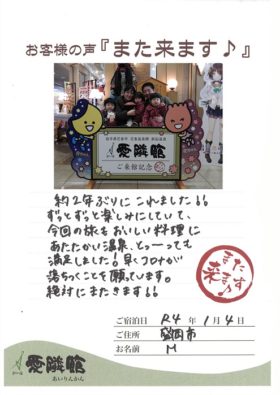 お客様の声『また来ます♪』
愛隣館
ご来館記念
約2年ぶりにこれました!!
ずっとずっと楽しみにしていて、
今回の旅もおいしい料理に
あたたかい温泉、とぅーっても
満足しました! 早くコロナが
落ちつくことを願っています。
絶対にまたきます!!
また来ます♪
ご宿泊日 R4年1月4日
ご住所 盛岡市
お名前 M
愛隣館
あいりんかん